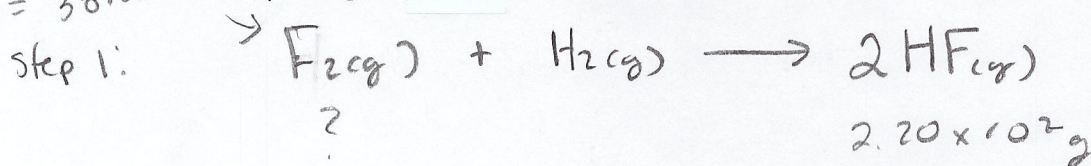 step 1: → F₂(g) + H₂(g) → 2HF(g)
? 2.20 x 10² g